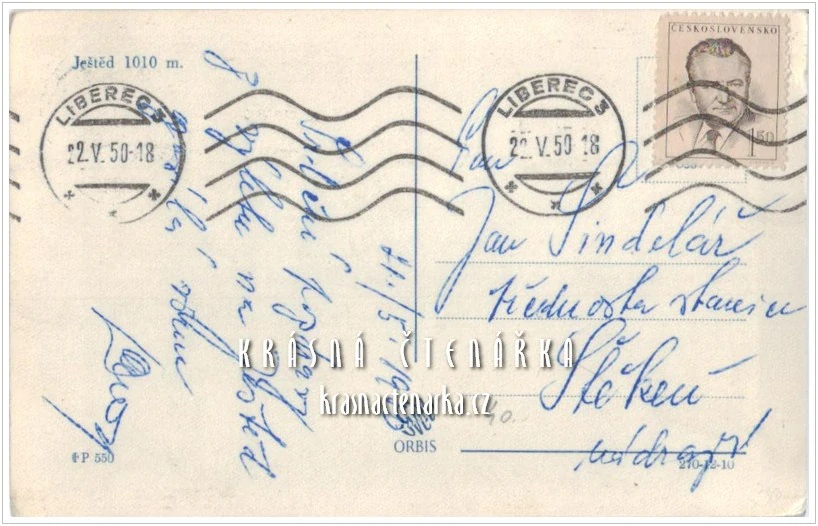 Ještěd 1010 m.
ČESKOSLOVENSKO
1,50
LIBEREC 3
22.V.50-18
LIBEREC 3
22.V.50-18
Srdečné pozdravy
z výletu na Ještěd
21./5. 1950
Pan
Jan Šindelář
přednosta stanice
Štěkeň
nádraží
KRÁSNÁ ČTENÁŘKA
krasnactenarka.cz
40.
ORBIS
P 550
270-12-10